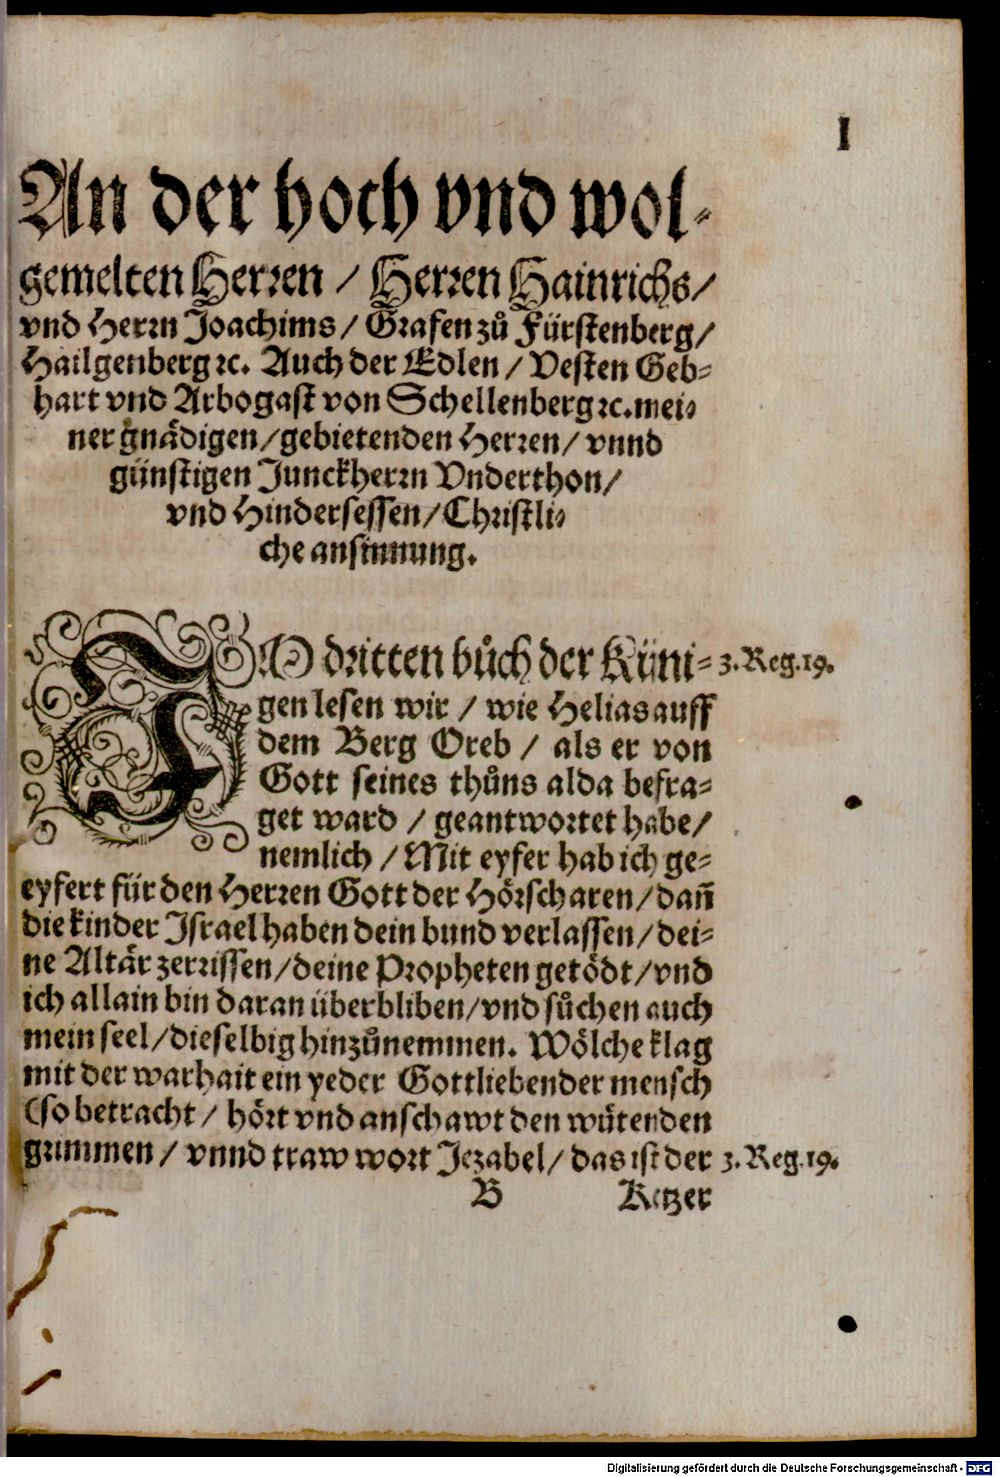 I
An der hoch vnd wol-
gemelten Herren / Herren Hainrichs /
vnd Herrn Joachims / Grafen zů Fürstenberg /
Hailgenberg ꝛc. Auch der Edlen / Vesten Geb-
hart vnd Arbogast von Schellenberg ꝛc. mei-
ner gnädigen / gebietenden Herren / vnnd
günstigen Junckherrn Vnderthon /
vnd Hindersessen / Christli-
che ansinnung.
IM dritten bůch der Küni- 3. Reg. 19.
gen lesen wir / wie Helias auff
dem Berg Oreb / als er von
Gott seines thůns alda befra-
get ward / geantwortet habe /
nemlich / Mit eyfer hab ich ge-
eyfert für den Herren Gott der Hörscharen / dañ
die kinder Israel haben dein bund verlassen / dei-
ne Altär zerrissen / deine Propheten getödt / vnd
ich allain bin daran überbliben / vnd sůchen auch
mein seel / dieselbig hinzůnemmen. Wölche klag
mit der warhait ein yeder Gottliebender mensch
(so betracht / hört vnd anschawt den wütenden
grimmen / vnnd traw wort Jezabel / das ist der 3. Reg. 19.
B Ketzer
Digitalisierung gefördert durch die Deutsche Forschungsgemeinschaft - DFG